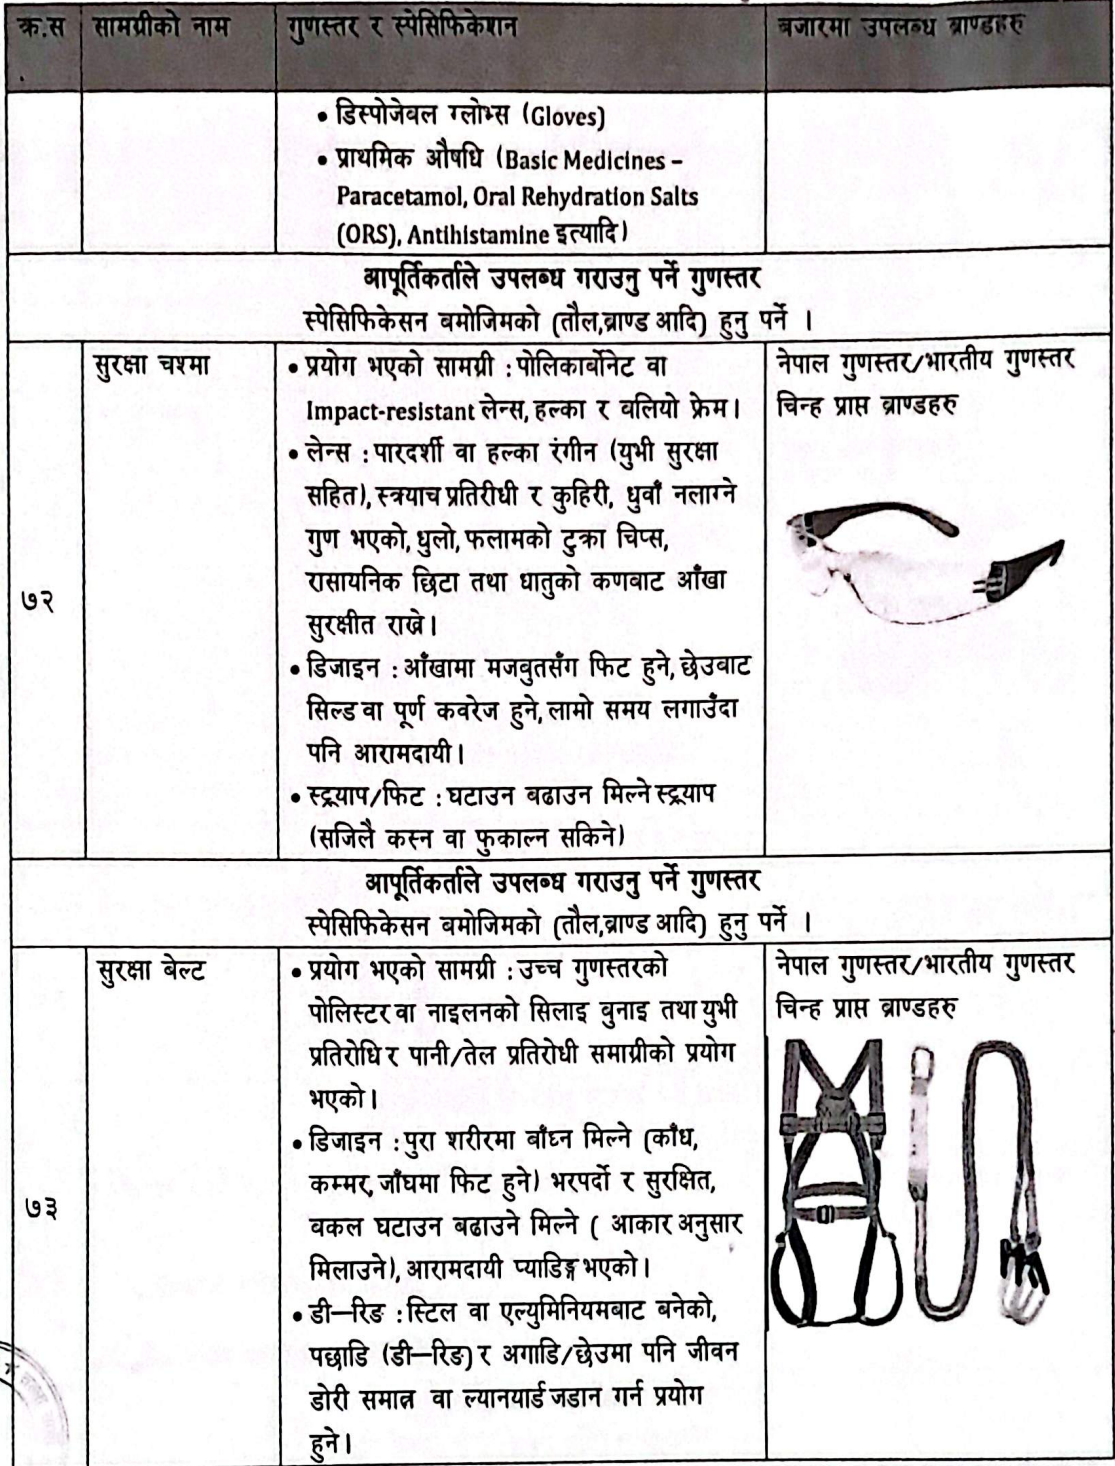 क्र.स सामग्रीको नाम गुणस्तर र स्पेसिफिकेशन बजारमा उपलब्ध ब्राण्डहरु
• डिस्पोजेबल ग्लोभ्स (Gloves)
• प्राथमिक औषधि (Basic Medicines –
Paracetamol, Oral Rehydration Salts
(ORS), Antihistamine इत्यादि।
आपूर्तिकर्ताले उपलब्ध गराउनु पर्ने गुणस्तर
स्पेसिफिकेसन बमोजिमको (तौल,ब्राण्ड आदि) हुनु पर्ने ।
७२
सुरक्षा चश्मा
• प्रयोग भएको सामग्री : पोलिकार्बोनेट वा
Impact-resistant लेन्स, हल्का र वलियो फ्रेम।
• लेन्स : पारदर्शी वा हल्का रंगीन (युभी सुरक्षा
सहित), स्क्र्याच प्रतिरीधी र कुहिरी, धुवाँ नलाग्ने
गुण भएको, धुलो, फलामको टुक्रा चिप्स,
रासायनिक छिटा तथा धातुको कणबाट आँखा
सुरक्षीत राख्ने।
• डिजाइन : आँखामा मजबुतसँग फिट हुने, छेउबाट
सिल्ड वा पूर्ण कवरेज हुने, लामो समय लगाउँदा
पनि आरामदायी।
• स्ट्र्याप/फिट : घटाउन बढाउन मिल्ने स्ट्र्याप
(सजिलै कस्न वा फुकाल्न सकिने)
नेपाल गुणस्तर/भारतीय गुणस्तर
चिन्ह प्राप्त ब्राण्डहरु
आपूर्तिकर्ताले उपलब्ध गराउनु पर्ने गुणस्तर
स्पेसिफिकेसन बमोजिमको (तौल,ब्राण्ड आदि) हुनु पर्ने ।
७३
सुरक्षा बेल्ट
• प्रयोग भएको सामग्री : उच्च गुणस्तरको
पोलिस्टर वा नाइलनको सिलाइ बुनाइ तथा युभी
प्रतिरोधि र पानी/तेल प्रतिरोधी समाग्रीको प्रयोग
भएको।
• डिजाइन : पुरा शरीरमा बाँध्न मिल्ने (काँध,
कम्मर, जाँघमा फिट हुने) भरपर्दो र सुरक्षित,
बकल घटाउन बढाउने मिल्ने ( आकार अनुसार
मिलाउने), आरामदायी प्याडिङ्ग भएको।
• डी—रिङ : स्टिल वा एल्युमिनियमबाट बनेको,
पछाडि (डी—रिङ) र अगाडि/छेउमा पनि जीवन
डोरी समात्न वा ल्यानयार्ड जडान गर्न प्रयोग
हुने।
नेपाल गुणस्तर/भारतीय गुणस्तर
चिन्ह प्राप्त ब्राण्डहरु